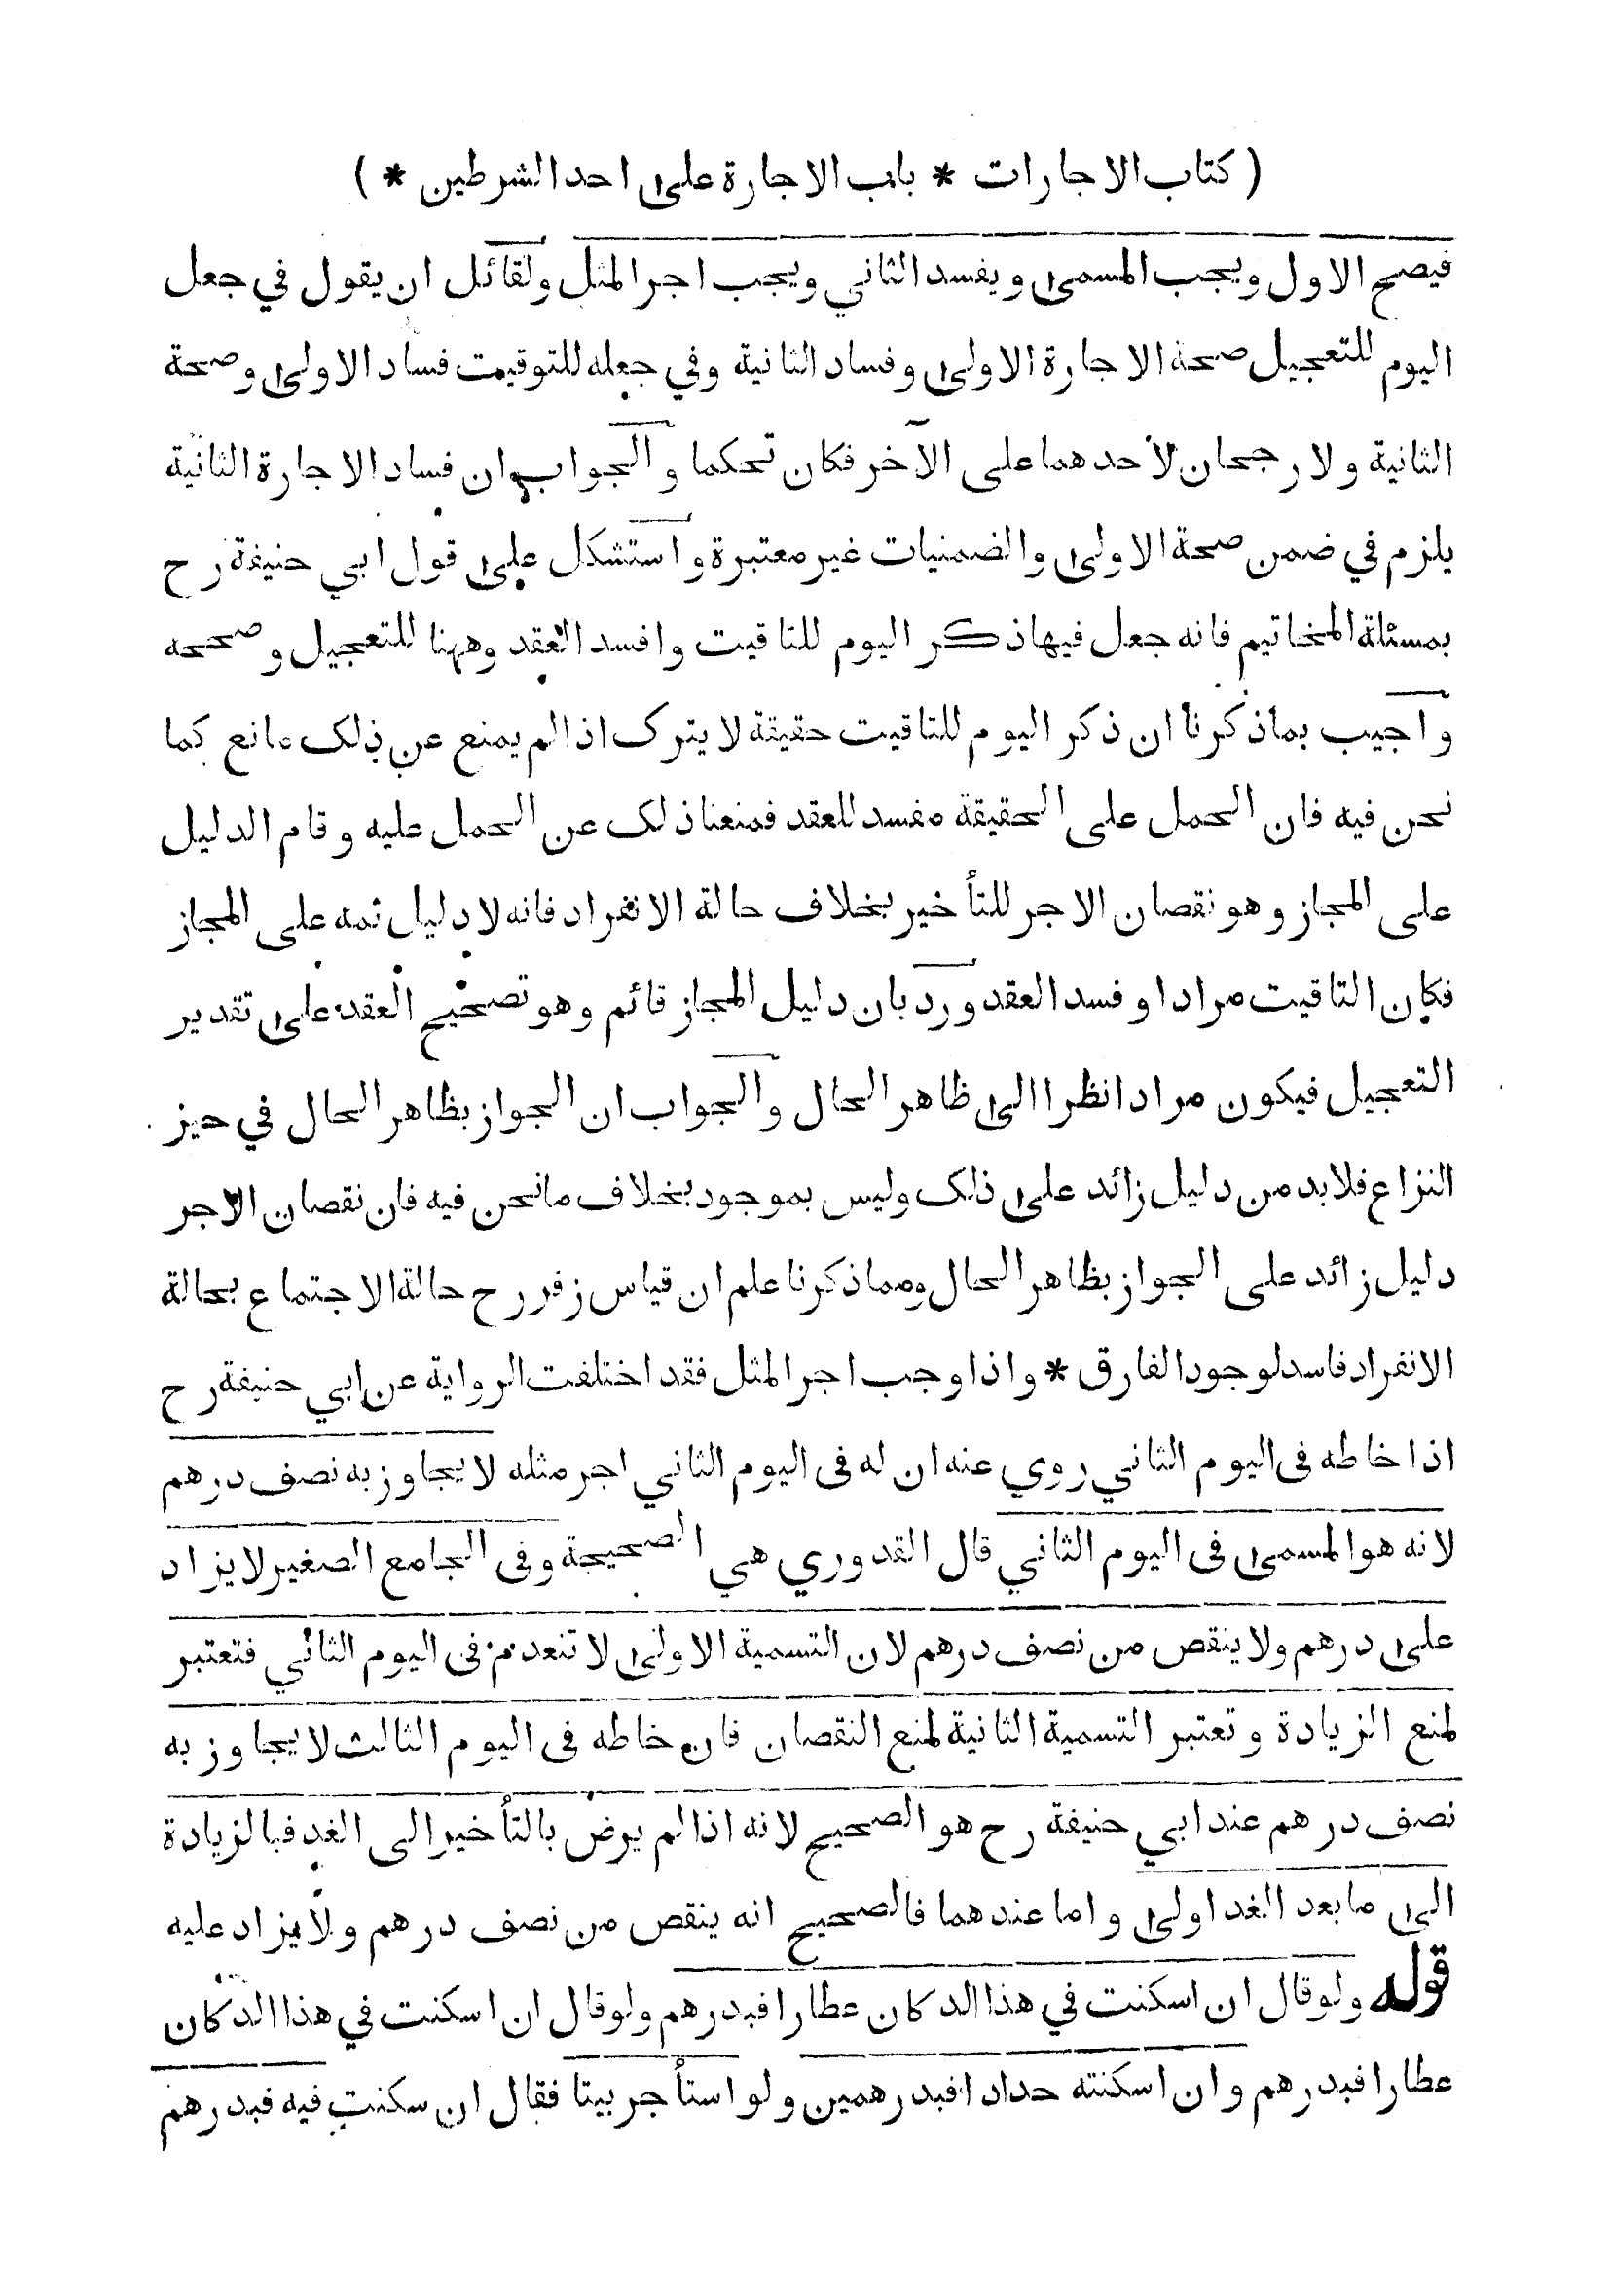 ( كتاب الاجارات * باب الاجارة على احد الشرطين * )
فيصح الاول ويجب المسمى ويفسد الثاني ويجب اجر المثل ولقائل ان يقول في جعل
اليوم للتعجيل صحة الاجارة الاولى وفساد الثانية وفي جعله للتوقيت فساد الاولى وصحة
الثانية ولا رجحان لاحدهما على الآخر فكان تحكما والجواب ان فساد الاجارة الثانية
يلزم في ضمن صحة الاولى والضمنيات غير معتبرة واستشكل على قول ابي حنيفة رح
بمسئلة المخاتيم فانه جعل فيها ذكر اليوم للتاقيت وافسد العقد وههنا للتعجيل وصححه
واجيب بماذكرنا ان ذكر اليوم للتاقيت حقيقة لا يترك اذا لم يمنع عن ذلك مانع كما
نحن فيه فان الحمل على الحقيقة مفسد للعقد فمنعنا ذلك عن الحمل عليه وقام الدليل
على المجاز وهو نقصان الاجر للتأخير بخلاف حالة الانفراد فانه لا دليل ثمه على المجاز
فكان التاقيت مرادا وفسد العقد ورد بان دليل المجاز قائم وهو تصحيح العقد على تقدير
التعجيل فيكون مرادا نظرا الى ظاهر الحال والجواب ان الجواز بظاهر الحال في حيز
النزاع فلابد من دليل زائد على ذلك وليس بموجود بخلاف مانحن فيه فان نقصان الاجر
دليل زائد على الجواز بظاهر الحال ومماذكرنا علم ان قياس زفر رح حالة الاجتماع بحالة
الانفراد فاسد لوجود الفارق * واذا وجب اجر المثل فقد اختلفت الرواية عن ابي حنيفة رح
اذا خاطه فى اليوم الثاني روي عنه ان له فى اليوم الثاني اجر مثله لا يجاوز به نصف درهم
لانه هو المسمى فى اليوم الثاني قال القدوري هي الصحيحة وفى الجامع الصغير لا يزاد
على درهم ولا ينقص من نصف درهم لان التسمية الاولى لا تنعدم فى اليوم الثاني فتعتبر
لمنع الزيادة وتعتبر التسمية الثانية لمنع النقصان فان خاطه فى اليوم الثالث لا يجاوز به
نصف درهم عند ابي حنيفة رح هو الصحيح لانه اذا لم يرض بالتأخير الى الغد فبالزيادة
الى مابعد الغد اولى واما عندهما فالصحيح انه ينقص من نصف درهم ولا يزاد عليه
قوله ولو قال ان اسكنت في هذا الدكان عطارا فبدرهم ولو قال ان اسكنت في هذا الدكان
عطارا فبدرهم وان اسكنته حدادا فبدرهمين ولو استأجر بيتا فقال ان سكنت فيه فبدرهم